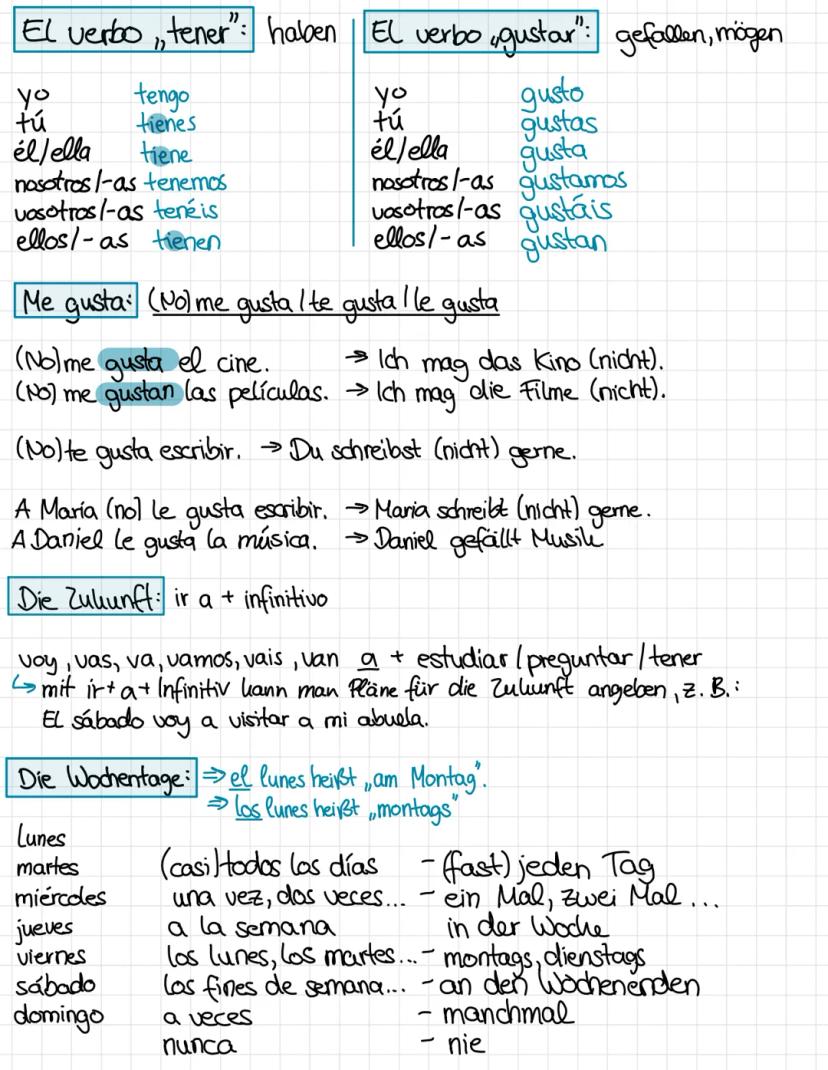 El verbo „tener“: haben
yo tengo
tú tienes
él/ella tiene
nosotros/-as tenemos
vosotros/-as tenéis
ellos/-as tienen
El verbo „gustar“: gefallen, mögen
yo gusto
tú gustas
él/ella gusta
nosotros/-as gustamos
vosotros/-as gustáis
ellos/-as gustan
Me gusta: (No) me gusta / te gusta / le gusta
(No) me gusta el cine. → Ich mag das Kino (nicht).
(No) me gustan las películas. → Ich mag die Filme (nicht).
(No) te gusta escribir. → Du schreibst (nicht) gerne.
A María (no) le gusta escribir. → Maria schreibt (nicht) gerne.
A Daniel le gusta la música. → Daniel gefällt Musik
Die Zukunft: ir a + infinitivo
voy, vas, va, vamos, vais, van a + estudiar / preguntar / tener
↳ mit ir + a + Infinitiv kann man Pläne für die Zukunft angeben, z. B.:
El sábado voy a visitar a mi abuela.
Die Wochentage: ⇒ el lunes heißt „am Montag“.
⇒ los lunes heißt „montags“
lunes
martes
miércoles
jueves
viernes
sábado
domingo
(casi) todos los días - (fast) jeden Tag
una vez, dos veces... - ein Mal, zwei Mal ...
a la semana in der Woche
los lunes, los martes... - montags, dienstags
los fines de semana... - an den Wochenenden
a veces - manchmal
nunca - nie